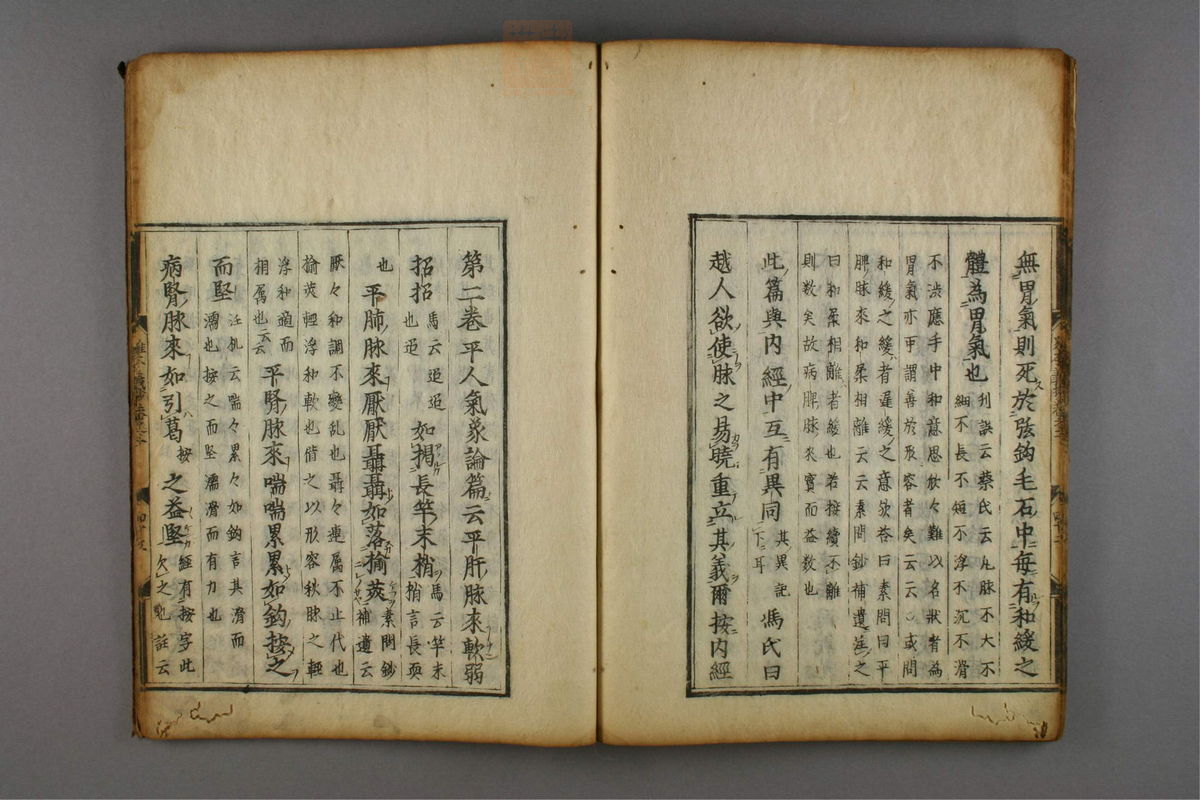 無胃氣則死於弦鈎毛石中毎有和緩之
體為胃氣也
利訣云蔡氏云凡脉不大不
細不長不短不浮不沉不滑
不渋應手中和意思欣々難以名狀者為
胃氣亦曰
謂善於形容者矣云云○或問
和緩之緩者遅緩之意欤答曰素問曰平
脾脉來和柔相離云云素問鈔補遺
曰和柔相離者緩也若接續不離
則数矣故病脾脉來實而益数也
此篇與内經中互有異同
其異記
下耳
馮氏曰
越人欲使脉之易曉重立其義爾按内經
第二巻平人氣象論篇云平肝脉來軟弱
招招
馬云迢迢
也迢
如揭長竿末梢
馬云竿末
梢言長耎
也
平肺脉來厭厭聶聶如落揄莢
素問鈔
補遺云
厭々和調不變乱也聶々連属不止代也
揄莢輕浮和軟也偕之以形容秋脉之輕
浮和適而
相属也云云
平腎脉來喘喘累累如鈎按之
而堅
汪机云喘々累々如鈎言其滑而
濡也按之而堅濡滑而有力也
病腎脉來如引葛
按
之益堅
經有按字此
欠之也註云